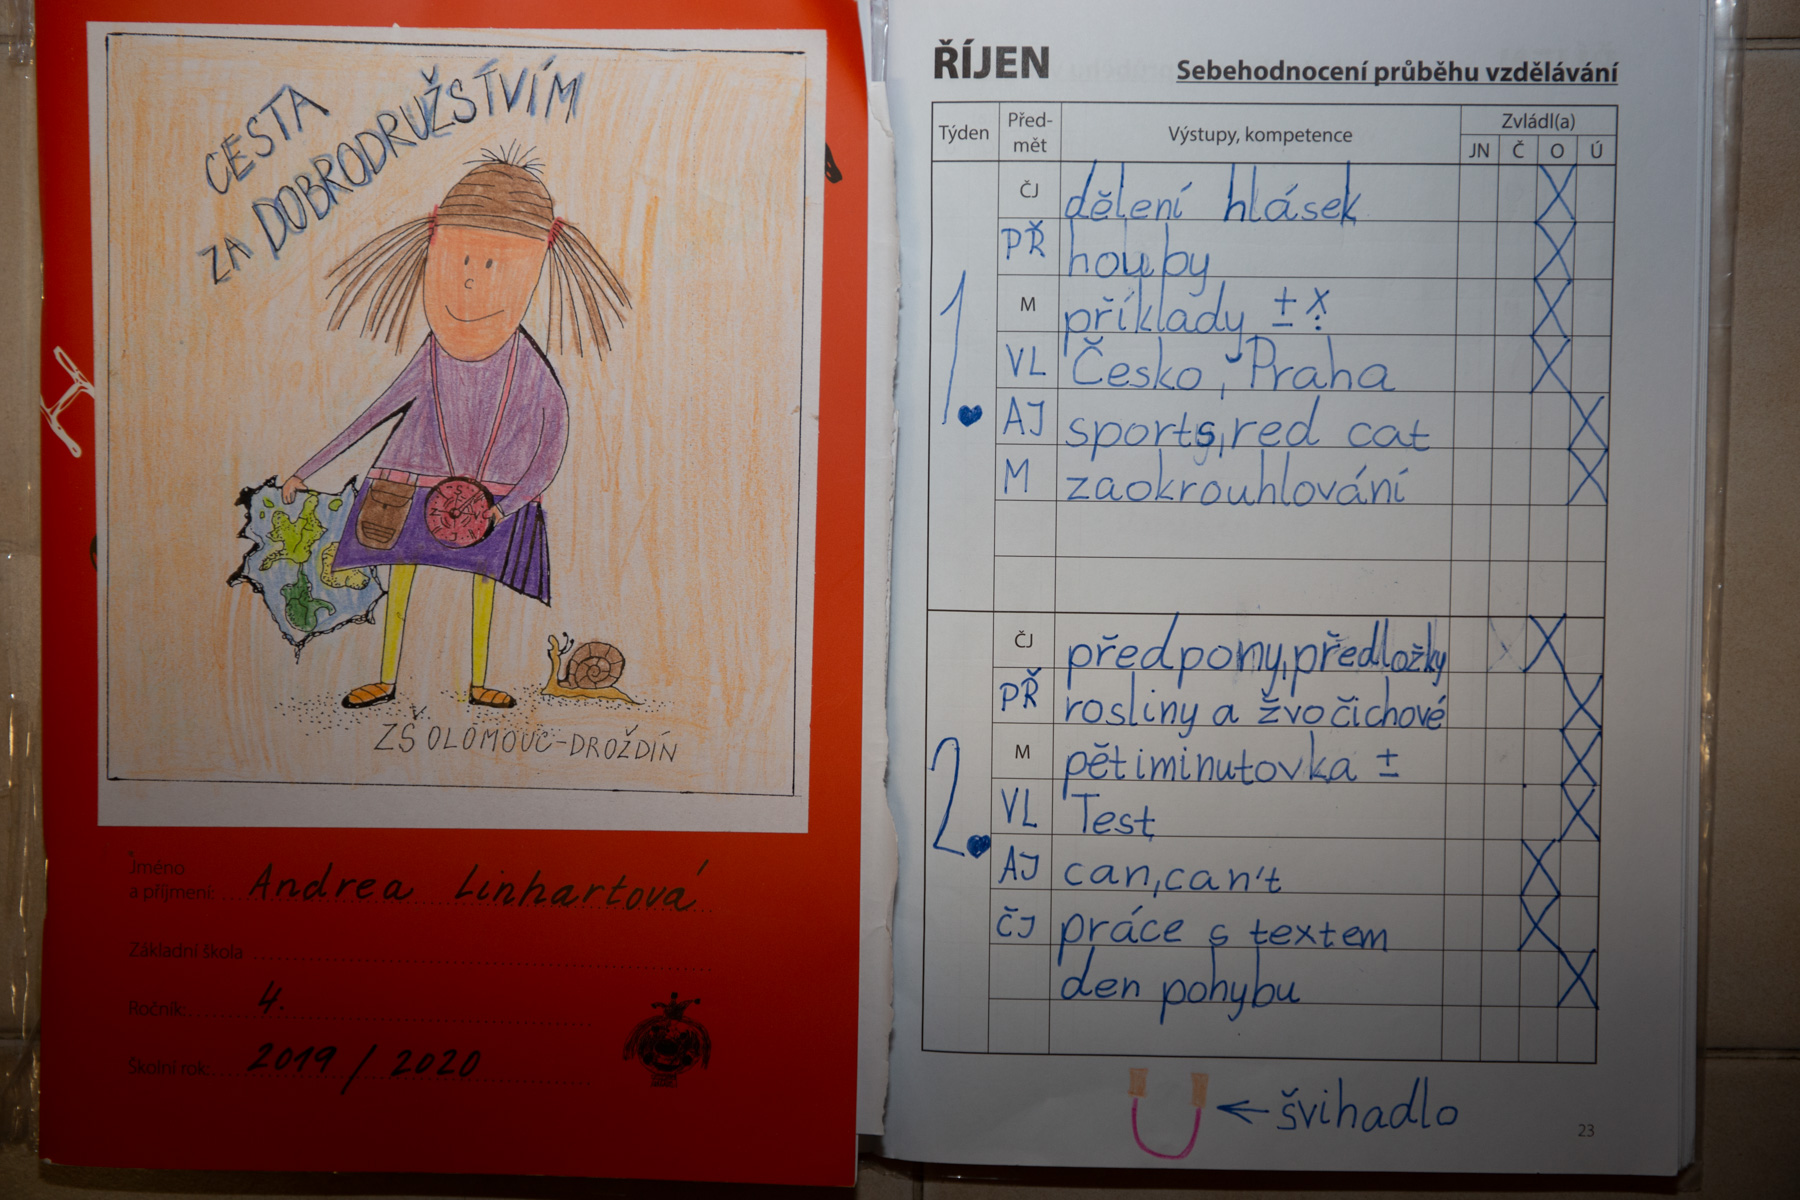 CESTA
ZA DOBRODRUŽSTVÍM
ZŠ OLOMOUC-DROŽDÍN
Jméno
a příjmení: Andrea Linhartová
Základní škola
Ročník: 4.
Školní rok: 2019 / 2020
ŘÍJEN Sebehodnocení průběhu vzdělávání
Týden Před-mět Výstupy, kompetence Zvládl(a)
JN Č O Ú
1.
ČJ dělení hlásek X
PŘ houby X
M příklady ± x : X
VL Česko, Praha X
AJ sports, red cat X
M zaokrouhlování X
2.
ČJ předpony, předložky X
PŘ rostliny a živočichové X
M pětiminutovka ± X
VL Test X
AJ can, can't X
ČJ práce s textem X
den pohybu X
← švihadlo
23